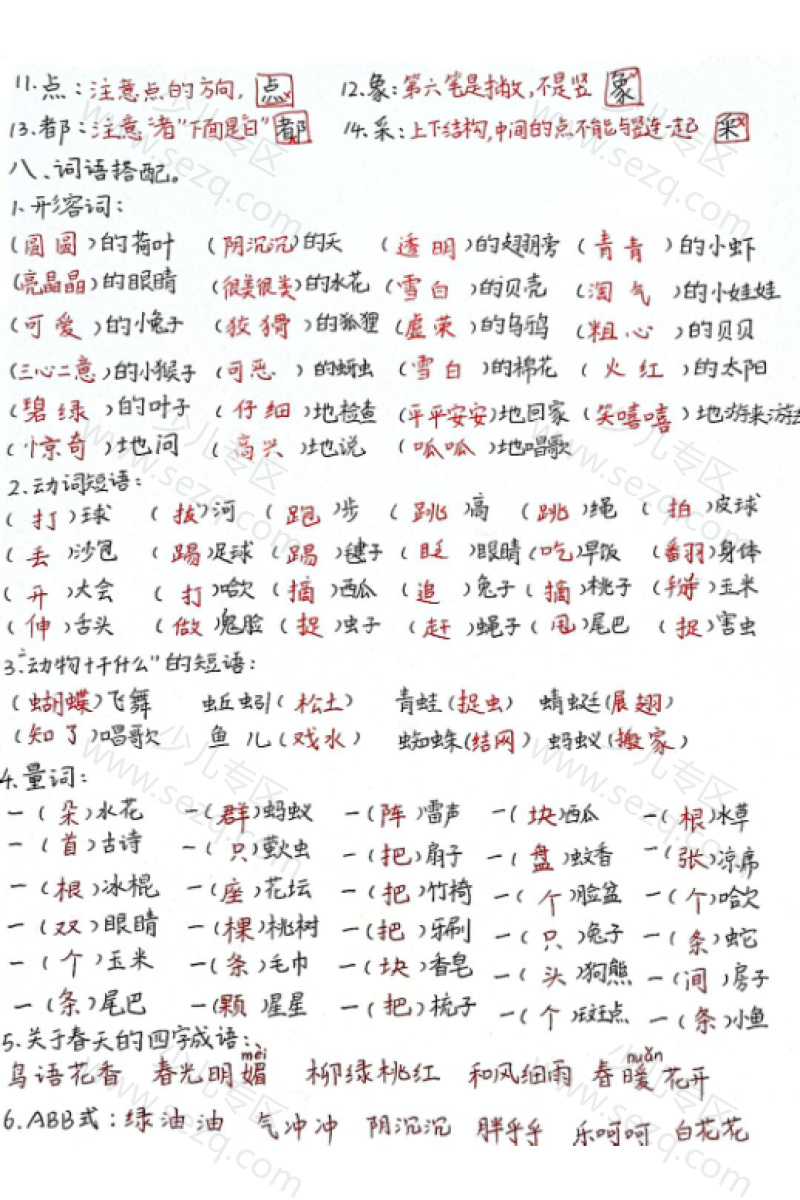 11.点：注意点的方向，点 12.象：第六笔是撇，不是竖 象
13.都：注意"者"下面是"日" 都 14.采：上下结构，中间的点不能与竖连一起 采
八、词语搭配。
1.形容词：
（圆圆）的荷叶 （阴沉沉）的天 （透明）的翅膀 （青青）的小虾
（亮晶晶）的眼睛 （很美很美）的水花 （雪白）的贝壳 （淘气）的小娃娃
（可爱）的小兔子 （狡猾）的狐狸 （虚荣）的乌鸦 （粗心）的贝贝
（三心二意）的小猴子 （可恶）的蚜虫 （雪白）的棉花 （火红）的太阳
（碧绿）的叶子 （仔细）地检查 （平平安安）地回家 （笑嘻嘻）地游来游去
（惊奇）地问 （高兴）地说 （呱呱）地唱歌
2.动词短语：
（打）球 （拔）河 （跑）步 （跳）高 （跳）绳 （拍）皮球
（丢）沙包 （踢）足球 （踢）毽子 （眨）眼睛 （吃）早饭 （翻）身体
（开）大会 （打）哈欠 （摘）西瓜 （追）兔子 （摘）桃子 （掰）玉米
（伸）舌头 （做）鬼脸 （捉）虫子 （赶）蝇子 （甩）尾巴 （捉）害虫
3."动物+干什么"的短语：
（蝴蝶）飞舞 蚯蚓（松土） 青蛙（捉虫） 蜻蜓（展翅）
（知了）唱歌 鱼儿（戏水） 蜘蛛（结网） 蚂蚁（搬家）
4.量词：
一（朵）水花 一（群）蚂蚁 一（阵）雷声 一（块）西瓜 一（根）水草
一（首）古诗 一（只）萤火虫 一（把）扇子 一（盘）蚊香 一（张）凉席
一（根）冰棍 一（座）花坛 一（把）竹椅 一（个）脸盆 一（个）哈欠
一（双）眼睛 一（棵）桃树 一（把）牙刷 一（只）兔子 一（条）蛇
一（个）玉米 一（条）毛巾 一（块）香皂 一（头）狗熊 一（间）房子
一（条）尾巴 一（颗）星星 一（把）梳子 一（个）斑点 一（条）小鱼
5.关于春天的四字成语：
mèi nuǎn
鸟语花香 春光明媚 柳绿桃红 和风细雨 春暖花开
6.ABB式：绿油油 气冲冲 阴沉沉 胖乎乎 乐呵呵 白花花
少儿专区
www.sezq.com